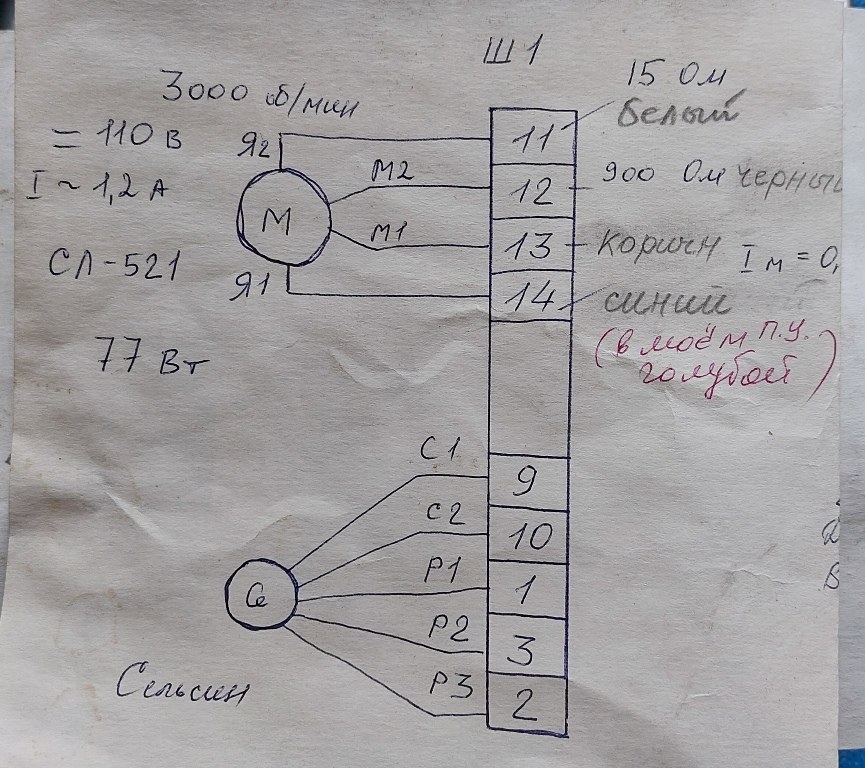 Ш1
3000 об/мин
15 Ом
белый
= 110 В
Я2
11
I ~ 1,2 А
М2
12
900 Ом черный
М
М1
13
коричн
Iм = 0,
СЛ-521
Я1
14
синий
(в моём п.у.
голубой)
77 Вт
С1
9
С2
10
Р1
1
Сс
Р2
3
Р3
2
Сельсин